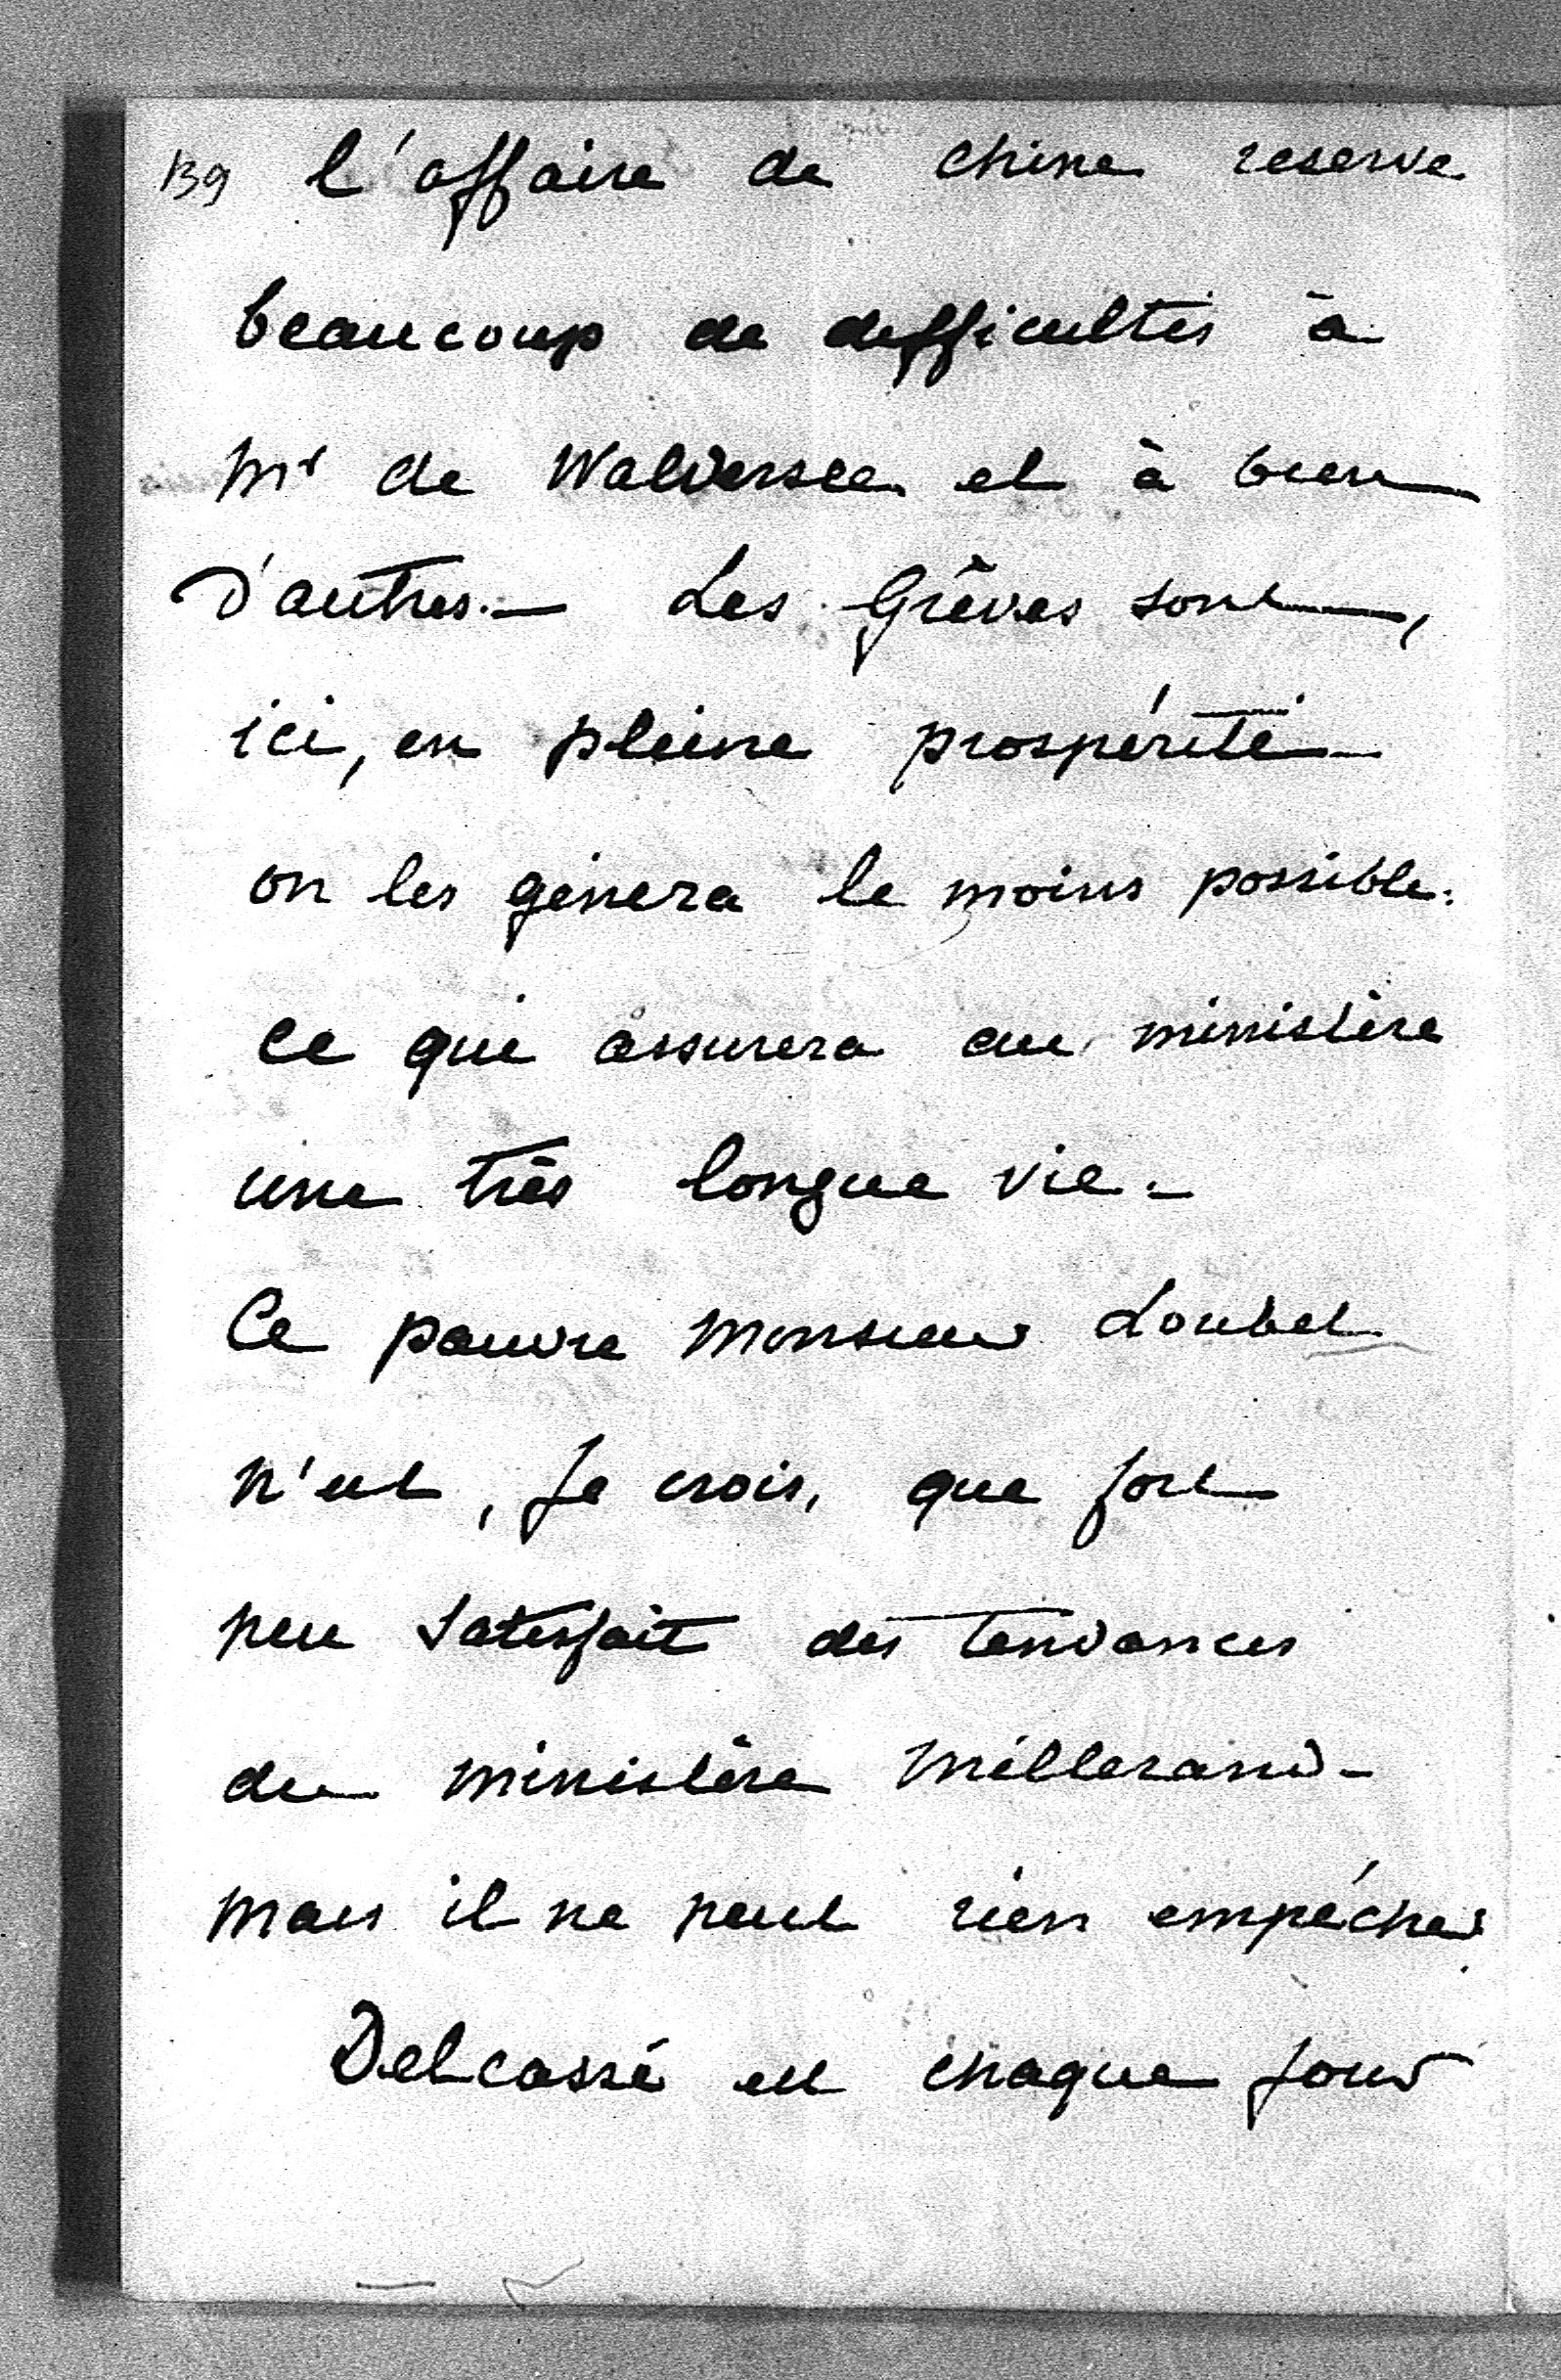 139 l'affaire de chine reserve
beaucoup de difficultés à
Mr de Waldersee et à bien
d'autres. — Les Grèves sont,
ici, en pleine prospérité —
on les gènera le moins possible.
ce qui assurera au ministère
une très longue vie. —
Ce pauvre Monsieur Loubet
n'est, je crois, que fort
peu satisfait des tendances
du ministère Millerand —
mais il ne peut rien empécher.
Delcassé est chaque jour